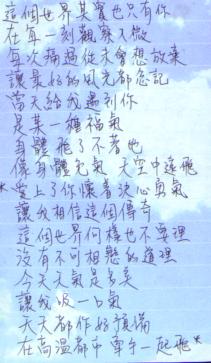 這個世界其實也只有你
在每一刻觀察入微
每次痛過從未會想放棄
讓最好的風光都忘記
當天給我遇到你
是某一種福氣
身體 拖了不著地
像身體充氣 天空中遠飛
*愛上了你懷著決心勇氣
讓我相信這個傳奇
這個世界何樣也不要理
沒有不可相戀的道理
今天天氣是多美
讓我吸一口氣
天天都作好預備
在高溫都市牽手一起飛*